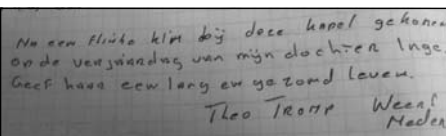 Na een flinke klim bij deze kapel gekomen
op de verjaardag van mijn dochter Inge.
Geef haar een lang en gezond leven.
Theo Tromp Weert
Neder